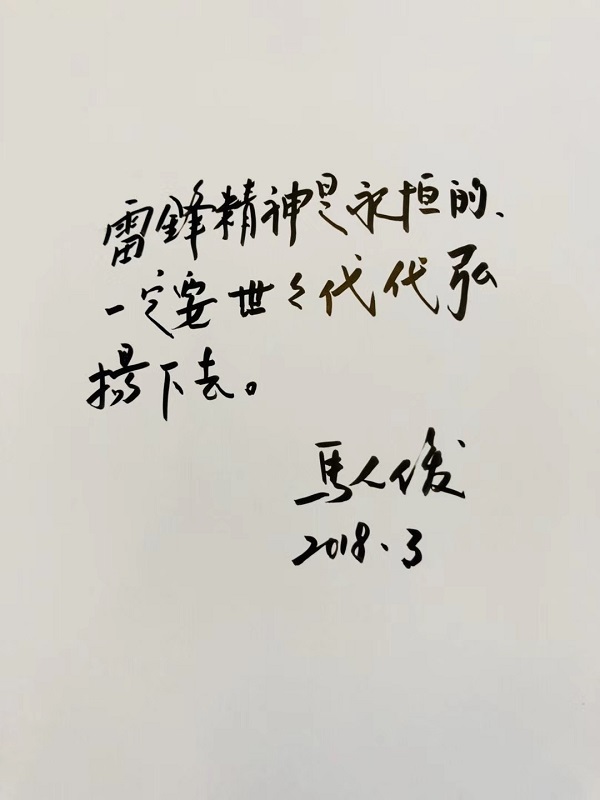 雷鋒精神是永恒的、
一定要世々代代弘
揚下去。
馬人俊
2018.3